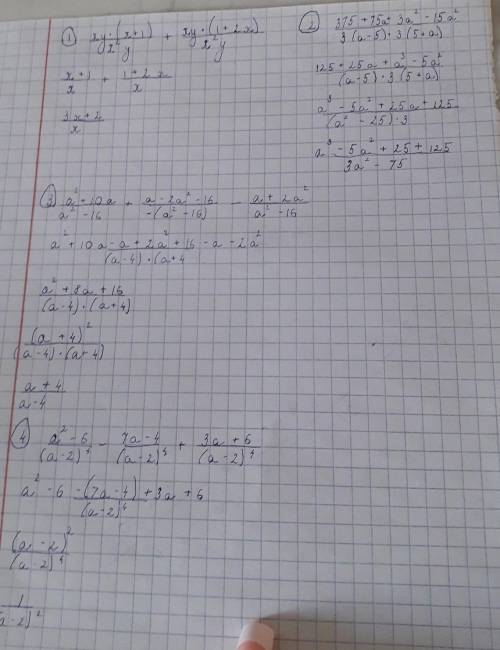 ① xy·(x+1)/x²y + xy·(1+2x)/x²y
x+1/x + 1+2x/x
3x+2/x
② 375+75a+3a³-15a²/3(a-5)·3(5+a)
125+25a+a³-5a²/(a-5)·3(5+a)
a³-5a²+25a+125/(a²-25)·3
a³-5a²+25+125/3a²-75
③ a²+10a/a²-16 + a-2a²-16/-(a²-16) - a+2a²/a²-16
a²+10a-a+2a²+16-a-2a²/(a-4)·(a+4
a²+8a+16/(a-4)·(a+4)
(a+4)²/(a-4)·(a+4)
a+4/a-4
④ a²-6/(a-2)⁴ - 7a-4/(a-2)⁴ + 3a+6/(a-2)⁴
a²-6-(7a-4)+3a+6/(a-2)⁴
(a-2)²/(a-2)⁴
1/(a-2)²